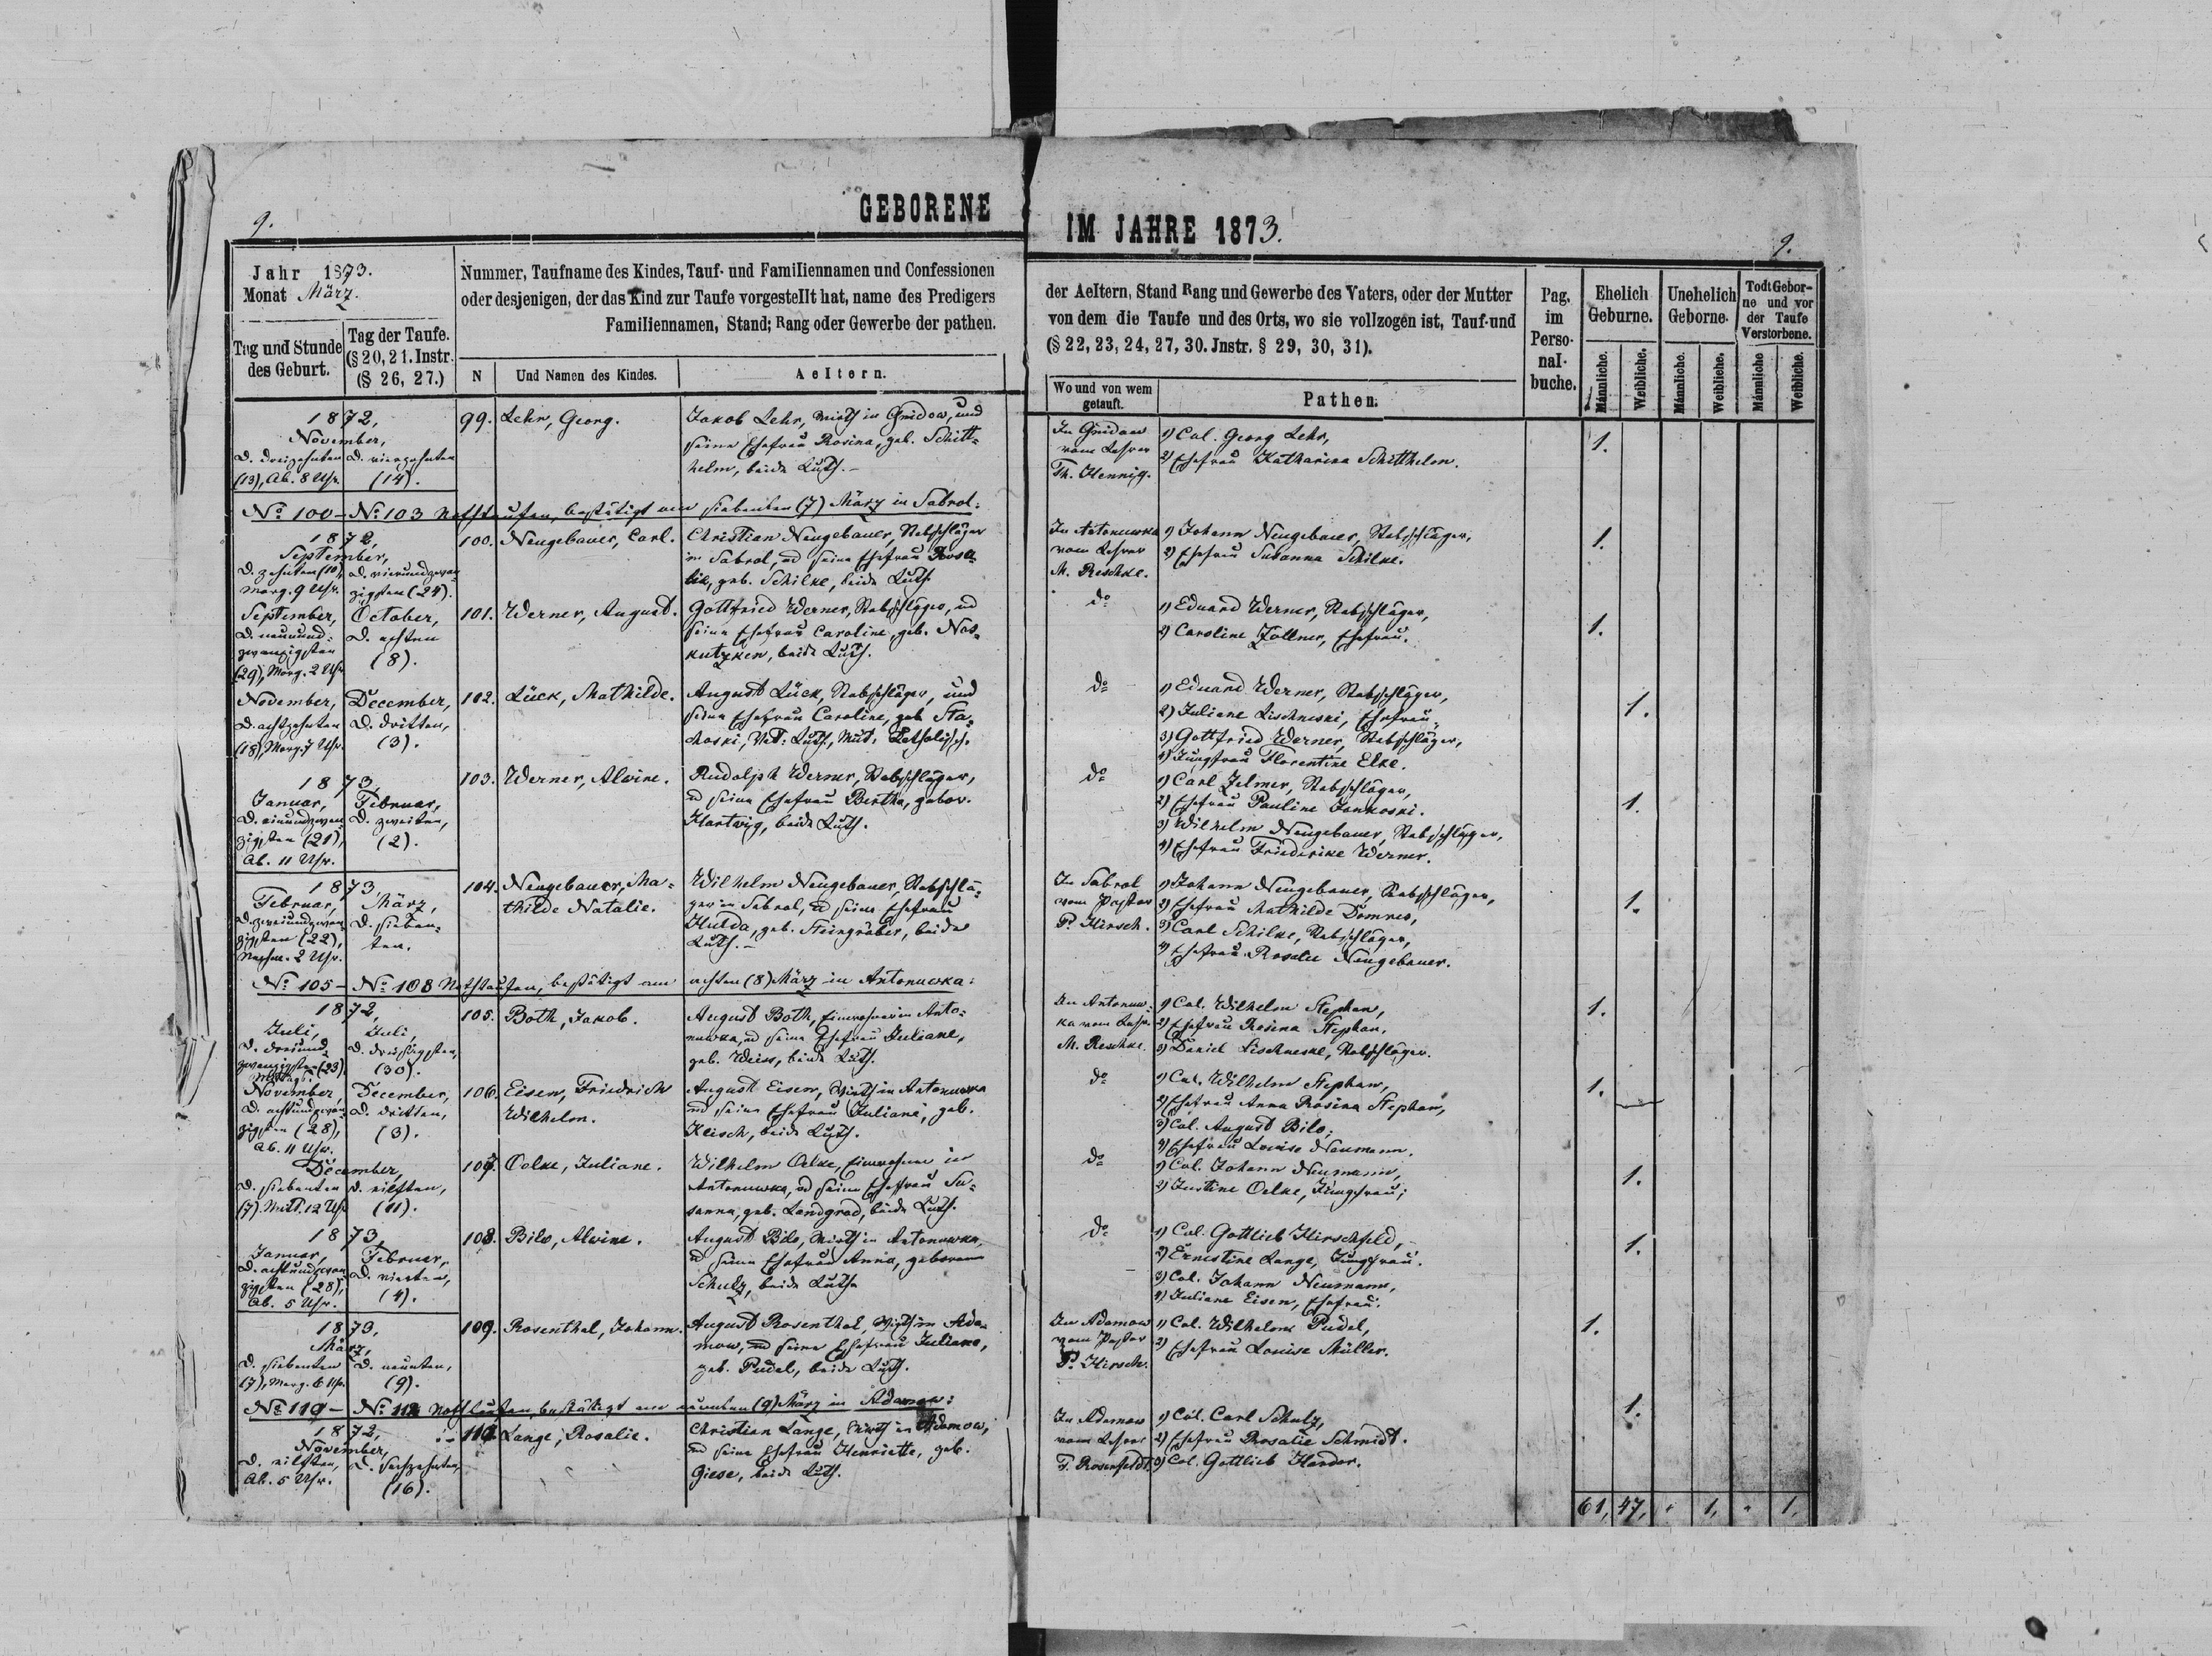 9.
GEBORENE
IM JAHRE 1873.
9.
Jahr 1873.
Monat März.
Tag und Stunde
des Geburt.
Tag der Taufe.
(§ 20, 21. Instr.
(§ 26, 27.)
Nummer, Taufname des Kindes, Tauf- und Familiennamen und Confessionen
oder desjenigen, der das Kind zur Taufe vorgestellt hat, name des Predigers
Familiennamen, Stand; Rang oder Gewerbe der pathen.
N
Und Namen des Kindes.
Aeltern.
der Aeltern, Stand Rang und Gewerbe des Vaters, oder der Mutter
von dem die Taufe und des Orts, wo sie vollzogen ist, Tauf-und
(§ 22, 23, 24, 27, 30. Jnstr. § 29, 30, 31).
Wo und von wem
getauft.
Pathen.
Pag.
im
Perso-
nal-
buche.
Ehelich
Geburne.
Unehelich
Geborne.
Todt Gebor-
ne und vor
der Taufe
Verstorbene.
Männliche.
Weibliche.
Männliche.
Weibliche.
Männliche
Weibliche.
1872,
November,
d. dreizehnten
(13), Ab. 8 Uhr.
d. vierzehnten
(14).
99. Lehr, Georg.
Jakob Lehr, Wirth in Gnidow, und
seine Ehefrau Rosina, geb. Schitt-
helm, beide Luth.-
In Gnidow
vom Lehrer
Th. Hennig.
1) Col. Georg Lehr,
2) Ehefrau Katharina Schitthelm.
1.
No. 100 - No. 103 Nothtaufen, bestätigt am siebenten (7) März in Sabrol:
1872,
September,
d. zehnten (10),
morg. 9 Uhr.
d. vierundzwan-
zigsten (24).
100. Neugebauer, Carl.
Christian Neugebauer, Stabschläger
in Sabrol, ud seine Ehefrau Rosa-
lie, geb. Schilke, beide Luth.
In Antonuwka
vom Lehrer
M. Reschke.
1) Johann Neugebauer, Stabschläger,
2) Ehefrau Susanna Schilke.
1.
September,
d. neunund-
zwanzigsten
(29), Morg. 2 Uhr
October,
d. achten
(8).
101. Werner, August.
Gottfried Werner, Stabschläger, ud
seine Ehefrau Caroline, geb. Nas-
kutzken, beide Luth.
do
1) Eduard Werner, Stabschläger,
2) Caroline Zollner, Ehefrau.
1.
November,
d. achtzehnten
(18), Morg. 7 Uhr.
December,
d. dritten,
(3).
102. Lück, Mathilde.
August Lück, Stabschläger, und
seine Ehefrau Caroline, geb. Sta-
choski, Vat: Luth, Mut: Katholisch.
do
1) Eduard Werner, Stabschläger,
2) Juliane Lischneski, Ehefrau,
3) Gottfried Werner, Stabschläger,
4) Jungfrau Florentine Elke.
1.
1873,
Januar,
d. einundzwan-
zigsten (21),
Ab. 11 Uhr.
Februar,
d. zweiten,
(2).
103. Werner, Alwine.
Rudolph Werner, Stabschläger,
ud seine Ehefrau Bertha, gebor.
Hartwig, beide Luth.
do
1) Carl Zelmer, Stabschläger,
2) Ehefrau Pauline Jankoski.
3) Wilhelm Neugebauer, Stabschläger,
4) Ehefrau Friederike Werner.
1.
1873,
Februar,
d. zweiundzwan-
zigsten (22),
Nachm. 2 Uhr.
März,
d. sieben-
ten.
104. Neugebauer, Ma-
thilde Natalie.
Wilhelm Neugebauer, Stabschlä-
ger in Sabrol, ud seine Ehefrau
Hulda, geb. Steingräber, beide
Luth.-
In Sabrol
vom Pastor
P. Hirsch.
1) Johann Neugebauer, Stabschläger,
2) Ehefrau Mathilde Domnes,
3) Carl Schilke, Stabschläger,
4) Ehefrau Rosalie Neugebauer.
1.
No. 105 - No. 108 Nothtaufen, bestätigt am achten (8) März in Antonuwka:
1872,
Juli,
d. dreiund-
zwanzigsten (23).
Mittags.
Juli,
d. dreißigsten,
(30).
105. Both, Jakob.
August Both, Einwohner in Anto-
nuwka, ud seine Ehefrau Juliane,
geb. Weiss, beide Luth.
In Antonuw-
ka vom Lehr.
M. Reschke.
1) Col. Wilhelm Stephan,
2) Ehefrau Rosina Stephan,
3) Daniel Lischneske, Stabschläger.
1.
November,
d. achtundzwan-
zigsten (28),
Ab. 11 Uhr.
December,
d. dritten,
(3).
106. Eisen, Friedrich
Wilhelm.
August Eisen, Wirth in Antonuwka
und seine Ehefrau Juliana, geb.
Klisch, beide Luth.
do
1) Col. Wilhelm Stephan,
2) Ehefrau Anna Rosina Stephan,
3) Col. August Bilo,
4) Ehefrau Louise Neumann.
1.
December,
d. siebenten
(7). Mitt. 12 Uhr
d. eilften,
(11).
107. Oelke, Juliane.
Wilhelm Oelke, Einwohner in
Antonuwka, ud seine Ehefrau Su-
sanna, geb. Landgrad, beide Luth.
do
1) Col. Johann Neumann,
2) Justine Oelke, Jungfrau;
1.
1873,
Januar,
d. achtundzwan-
zigsten (28),
Ab. 5 Uhr.
Februar,
d. vierten,
(4).
108. Bilo, Alwine.
August Bilo, Wirth in Antonuwka,
ud seine Ehefrau Anna, geborene
Schulz, beide Luth.
do
1) Col. Gottlieb Hirschfeld,
2) Ernestine Lange, Jungfrau.
3) Col. Johann Neumann,
4) Juliane Eisen, Ehefrau.
1.
1873,
März,
d. siebenten
(7), Morg. 6 Uhr.
d. neunten,
(9).
109. Rosenthal, Johann.
August Rosenthal, Wirth in Ada-
mow, ud seine Ehefrau Juliane,
geb. Pudel, beide Luth.
In Adamow
vom Pastor
P. Hirsch.
1) Col. Wilhelm Pudel,
2) Ehefrau Louise Müller.
1.
No. 110 - No. 112 Nothtaufen, bestätigt am neunten (9) März in Adamow:
1872,
November,
d. eilften,
Ab. 5 Uhr.
d. sechzehnten,
(16).
110. Lange, Rosalie.
Christian Lange, Wirth in Adamow,
ud seine Ehefrau Henriette, geb.
Giese, beide Luth.
In Adamow
vom Lehrer
F. Rosenfeldt.
1) Col. Carl Schulz,
2) Ehefrau Rosalie Schmidt.
3) Col. Gottlieb Harder.
1.
61, 47, " 1, " 1,